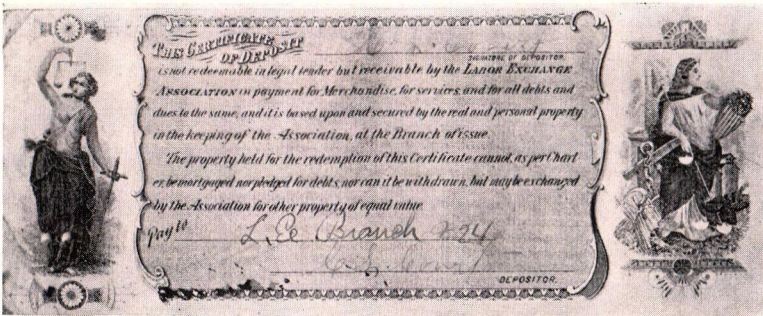 THIS CERTIFICATE
OF DEPOSIT
SIGNATURE OF DEPOSITOR.
is not redeemable in legal tender but receivable by the LABOR EXCHANGE
ASSOCIATION in payment for Merchandise, for services, and for all debts and
dues to the same, and it is based upon and secured by the real and personal property
in the keeping of the Association, at the Branch of issue.
The property held for the redemption of this Certificate cannot, as per Chart
er, be mortgaged nor pledged for debts, nor can it be withdrawn, but may be exchanged
by the Association for other property of equal value
Pay to
L. Ee Branch 224
DEPOSITOR.